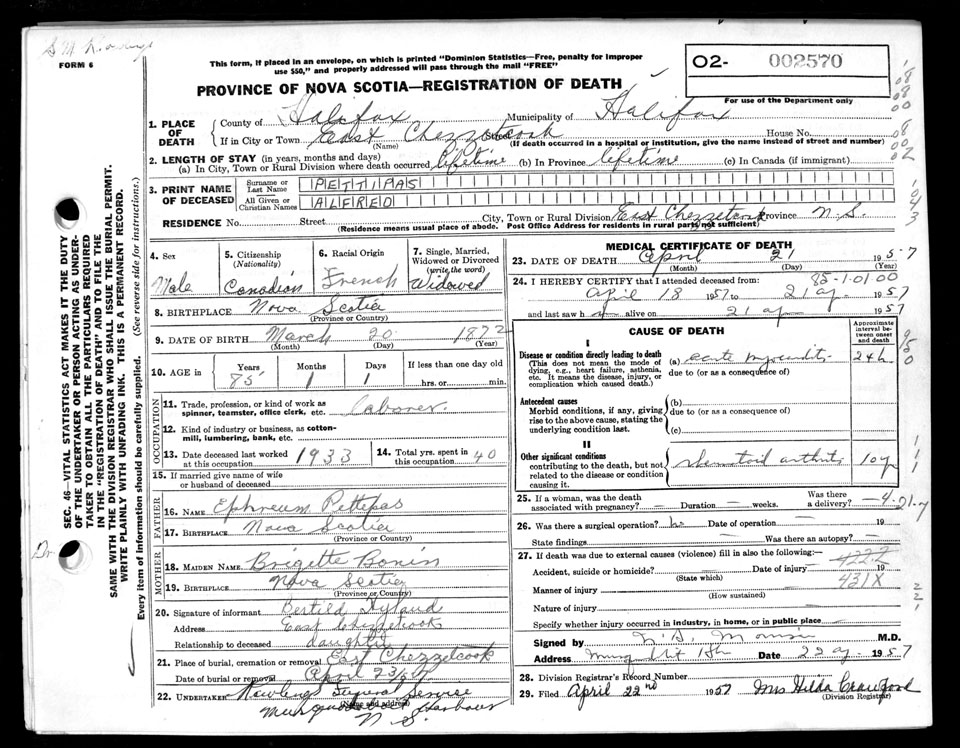 FORM 6
This form, if placed in an envelope, on which is printed "Dominion Statistics—Free, penalty for improper
use $50," and properly addressed will pass through the mail "FREE"
PROVINCE OF NOVA SCOTIA—REGISTRATION OF DEATH
O2- 002570
For use of the Department only
1. PLACE OF DEATH
County of Halifax Municipality of Halifax
If in City or Town East Chezzetcook Street House No.
(Name) (If death occurred in a hospital or institution, give the name instead of street and number)
2. LENGTH OF STAY (in years, months and days)
(a) In City, Town or Rural Division where death occurred lifetime (b) In Province lifetime (c) In Canada (if immigrant)
3. PRINT NAME OF DECEASED
Surname or Last Name PETTIPAS
All Given or Christian Names ALFRED
RESIDENCE No. Street City, Town or Rural Division East Chezzetcook Province N.S.
(Residence means usual place of abode. Post Office Address for residents in rural parts not sufficient)
4. Sex Male
5. Citizenship (Nationality) Canadian
6. Racial Origin French
7. Single, Married, Widowed or Divorced (write the word) Widowed
8. BIRTHPLACE Nova Scotia
(Province or Country)
9. DATE OF BIRTH March 20 1872
(Month) (Day) (Year)
10. AGE in Years Months Days If less than one day old
85 1 1 hrs. or min.
OCCUPATION
11. Trade, profession, or kind of work as spinner, teamster, office clerk, etc. laborer.
12. Kind of industry or business, as cotton-mill, lumbering, bank, etc.
13. Date deceased last worked at this occupation 1933
14. Total yrs. spent in this occupation 40
15. If married give name of wife or husband of deceased
FATHER
16. NAME Ephreum Pettepas
17. BIRTHPLACE Nova Scotia
(Province or Country)
MOTHER
18. MAIDEN NAME Brigette Bonin
19. BIRTHPLACE Nova Scotia
(Province or Country)
20. Signature of informant Hyland
Address East Chezzetcook
Relationship to deceased daughter
21. Place of burial, cremation or removal East Chezzetcook
Date of burial or removal April 23/57
22. UNDERTAKER Rawlings Funeral Service
(Name and address)
Musquodoboit Harbour
N.S.
MEDICAL CERTIFICATE OF DEATH
23. DATE OF DEATH April 21 1957
(Month) (Day) (Year)
24. I HEREBY CERTIFY that I attended deceased from: 85-1-01-00
April 18 1957 to 21 ap 1957
and last saw h alive on 21 ap 1957
CAUSE OF DEATH
Approximate interval between onset and death
I
Disease or condition directly leading to death (a) acute myocarditis 24h
(This does not mean the mode of dying, e.g., heart failure, asthenia, etc. It means the disease, injury, or complication which caused death.)
due to (or as a consequence of)
Antecedent causes
Morbid conditions, if any, giving rise to the above cause, stating the underlying condition last.
(b)
due to (or as a consequence of)
(c)
II
Other significant conditions
contributing to the death, but not related to the disease or condition causing it.
rheumatoid arthritis 10 y
25. If a woman, was the death associated with pregnancy? Duration weeks. Was there a delivery?
26. Was there a surgical operation? no Date of operation 19
State findings Was there an autopsy?
27. If death was due to external causes (violence) fill in also the following:
Accident, suicide or homicide? Date of injury 19
(State which)
431X
Manner of injury
(How sustained)
Nature of injury
Specify whether injury occurred in industry, in home, or in public place
Signed by M.D.
Address Date 22 ap 1957
28. Division Registrar's Record Number
29. Filed April 22nd 1957 Mrs Hilda Crawford
(Division Registrar)
SEC. 46—VITAL STATISTICS ACT MAKES IT THE DUTY
OF THE UNDERTAKER OR PERSON ACTING AS UNDER-
TAKER TO OBTAIN ALL THE PARTICULARS REQUIRED
IN THE "REGISTRATION OF DEATH" AND TO FILE THE
SAME WITH THE DIVISION REGISTRAR WHO SHALL ISSUE THE BURIAL PERMIT.
WRITE PLAINLY WITH UNFADING INK. THIS IS A PERMANENT RECORD.
Every item of information should be carefully supplied. (See reverse side for instructions.)